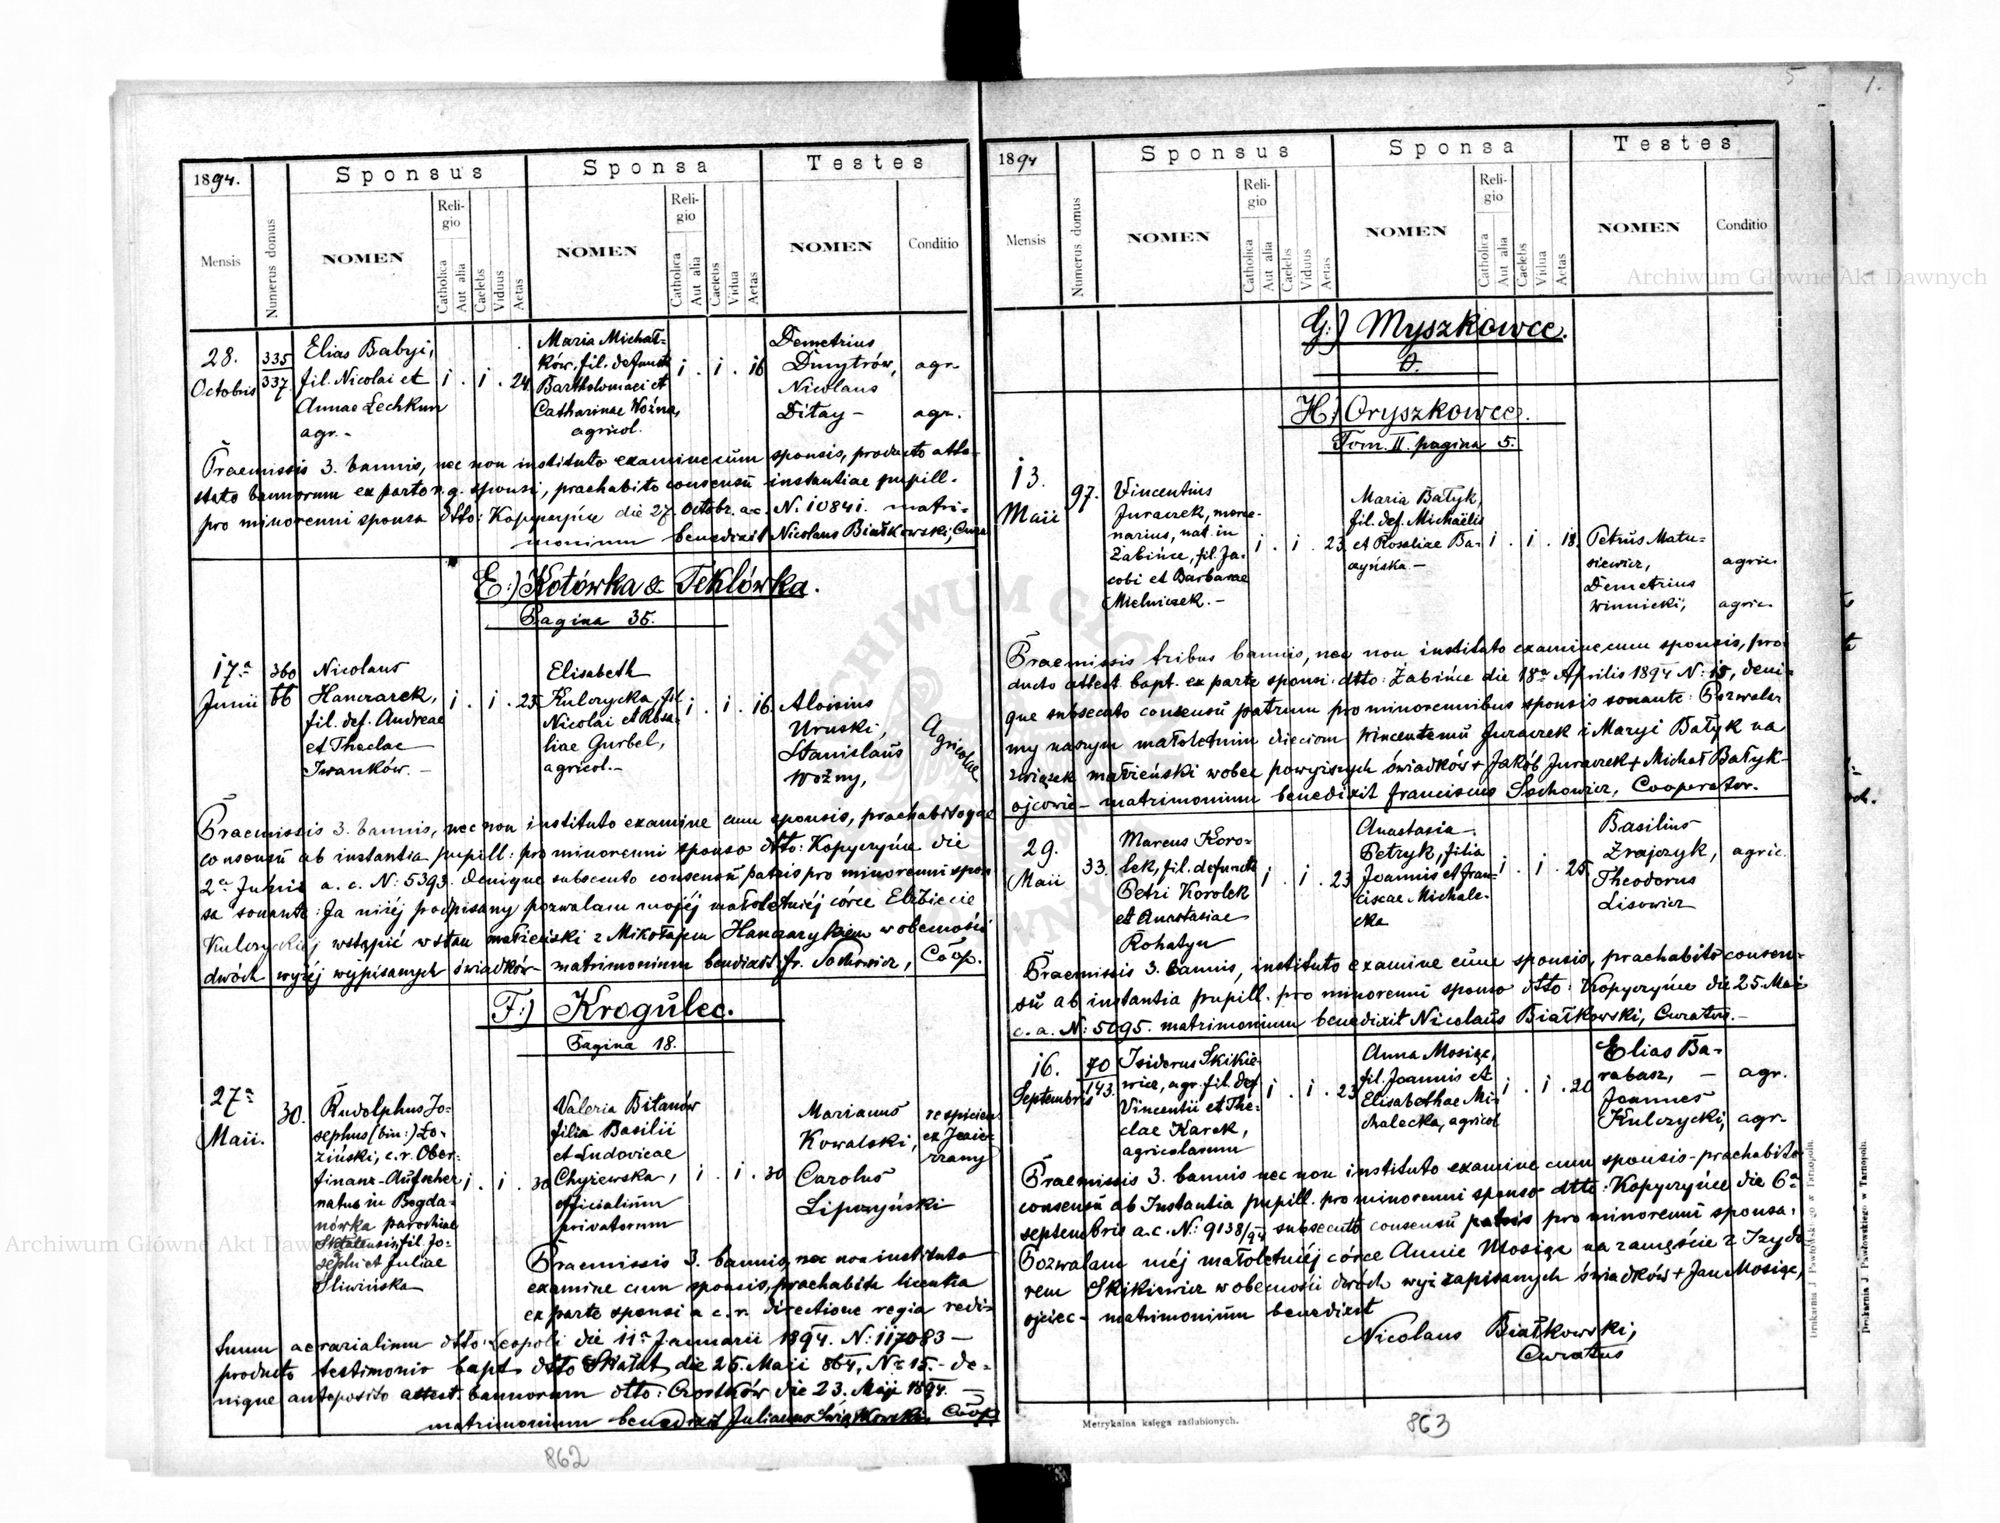 5
1.
1894.
Sponsus
Sponsa
Testes
Mensis
Numerus domus
NOMEN
Reli-
gio
Catholica
Aut alia
Caelebs
Viduus
Aetas
NOMEN
Reli-
gio
Catholica
Aut alia
Caelebs
Vidua
Aetas
NOMEN
Conditio
28.
Octobris
335
337
Elias Babyi,
fil. Nicolai et
Annae Lechkun
agr.-
i . i . 24
Maria Michał-
ków, fil. defuncti
Bartholomaei et
Catharinae Woźna,
agricol.
i . i . 16
Demetrius
Dmytrów,
Nicolaus
Ditay -
agr.
agr.
Praemissis 3. bannis, nec non instituto examine cum sponsis, producto atte-
stato bannorum ex parte r.g. sponsi, praehabito consensu instantiae pupill.
pro minorenni sponsa dtto: Kopyczyńce die 27. Octobr. a.c. N. 10841. matri-
monium benedixit Nicolaus Białkowski, Cura
E:) Kotówka & Teklówka.
Pagina 35.
17ª
Junii
360
66
Nicolaus
Hanczarek,
fil. def. Andreae
et Theclae
Iwanków. -
i . i . 23
Elisabeth
Kulczycka, fil.
Nicolai et Rosa-
liae Gurbel,
agricol.-
i . i . 16.
Aloisius
Uruski,
Stanislaus
Woźny,
Agricolae
Praemissis 3. bannis, nec non instituto examine cum sponsis, praehabitoque
consensu ab instantia pupill: pro minorenni sponso dtto: Kopyczyńce die
2ª Junii a. c. N: 5393. denique subsecuto consensu patris pro minorenni spon
sa sonante: Ja niżej podpisany pozwalam mojéj małoletniéj córce Elżbiecie
Kulczyckiéj wstąpić w stan małżeński z Mikołajem Hanczarykiem w obecności
dwóch wyżéj wypisanych świadków - matrimonium benedixit Fr. Sochowicz, Coop.
F:) Krogulec.
Pagina 18.
27ª
Maii.
30.
Rudolphus Jo-
sephus (bin:) Ło-
ziński, c.r. Ober-
finanz-Aufseher
natus in Bogda-
nówka parochiae
Skalatensis, fil. Jo-
sephi et Juliae
Śliwińska
i . i . 30
Valeria Bitanów
filia Basilii
et Ludovicae
Chyżewska,
officialium
privatorum
i . i . 30
Marianus
Kowalski,
Carolus
Lipczyński
respicien
ex Jezie-
rzany
Praemissis 3. bannis, nec non instituto
examine cum sponsis, praehabita licentia
ex parte sponsi a c. r. directione regia redi-
tuum aerarialium dtto: Leopoli die 11ª Januarii 1894. N: 117083 -
producto testimonio bapt. dtto Skałat die 25. Maii 864, Nr: 15. - de-
nique anteposito attest. bannorum dtto: Czortków die 23. Maji 1894. -
matrimonium benedixit Julianus Świątkowski Coop.
862
1894
Sponsus
Sponsa
Testes
Mensis
Numerus domus
NOMEN
Reli-
gio
Catholica
Aut alia
Caelebs
Viduus
Aetas
NOMEN
Reli-
gio
Catholica
Aut alia
Caelebs
Vidua
Aetas
NOMEN
Conditio
G:) Myszkowce.
0.
H:) Oryszkowce.
Tom. II. pagina 5.
13.
Maii
97.
Vincentius
Juraczek, merce-
narius, nat. in
Żabińce, fil. Ja-
cobi et Barbarae
Mielniczek. -
i . i . 23
Maria Bałyk,
fil. def. Michaëlis
et Rosaliae Ba-
czyńska. -
i . i . 18.
Petrus Matu-
siewicz,
Demetrius
Winnicki,
agric.
agric.
Praemissis tribus bannis, nec non instituto examine cum sponsis, pro-
ducto attest. bapt. ex parte sponsi: dtto: Żabińce die 18ª Aprilis 1894 N: 15, deni-
que subsecuto consensu patrum pro minorennibus sponsis sonante: Pozwala-
my naszym małoletnim dzieciom Wincentemu Juraczek i Maryi Bałyk na
związek małżeński wobec powyższych świadków + Jakób Juraczek + Michał Bałyk -
ojcowie - matrimonium benedixit Franciscus Sochowicz, Cooperator.
29.
Maii
33.
Marcus Koro-
lek, fil. defuncti
Petri Korolek
et Anastasiae
Rohatyn
i . i . 23
Anastasia
Petryk, filia
Joannis et Fran-
ciscae Michale-
cka
i . i . 25
Basilius
Zrajczyk,
Theodorus
Lisowicz
agric.
Praemissis 3. bannis, instituto examine cum sponsis, praehabito consen-
su ab instantia pupill. pro minorenni sponso dtto: Kopyczyńce die 25. Maii
c. a. N: 5095. matrimonium benedixit Nicolaus Białkowski, Curatus. -
16.
Septembris
70
143.
Isidorus Skikie-
wicz, agr. fil. def.
Vincentii et The-
clae Karek,
agricolarum
i . i . 23
Anna Mosiąz,
fil. Joannis et
Elisabethae Mi-
chalecka, agricol
i . i . 20
Elias Ba-
rabasz, -
Joannes
Kulczycki,
agr.
agr.
Praemissis 3. bannis nec non instituto examine cum sponsis - praehabito
consensu ab Instantia pupill. pro minorenni sponso dtto: Kopyczyńce die 6ª
septembris a.c. N: 9138/94 subsecuto consensu patris pro minorenni sponsa:
Pozwalam méj małoletniéj córce Annie Mosiąz na zamęście z Izydo
rem Skikiewicz w obecności dwóch wyż zapisanych świadków + Jan Mosiąz,
ojciec - matrimonium benedixit
Nicolaus Białkowski,
Curatus
Metrykalna księga zaślubionych.
863
Drukarnia J. Pawłowskiego w Tarnopolu.
Drukarnia J. Pawłowskiego w Tarnopolu.
Archiwum Główne Akt Dawnych
Archiwum Główne Akt Dawnych